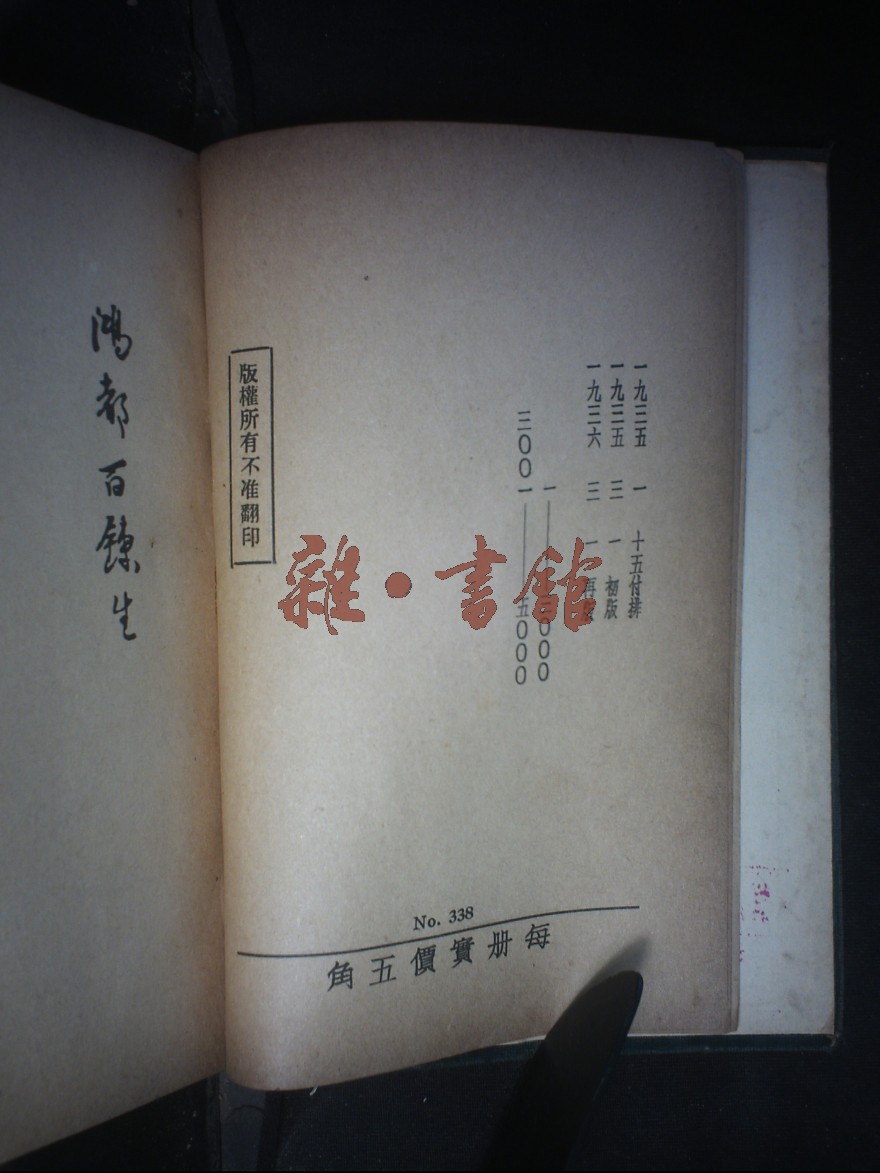 一九三五 一 十五付排
一九三五 三 一 初版
一九三六 三 一 再版
一——000
三00一——五000
版權所有不准翻印
No. 338
每册實價五角
鴻都百鍊生
雜·書館